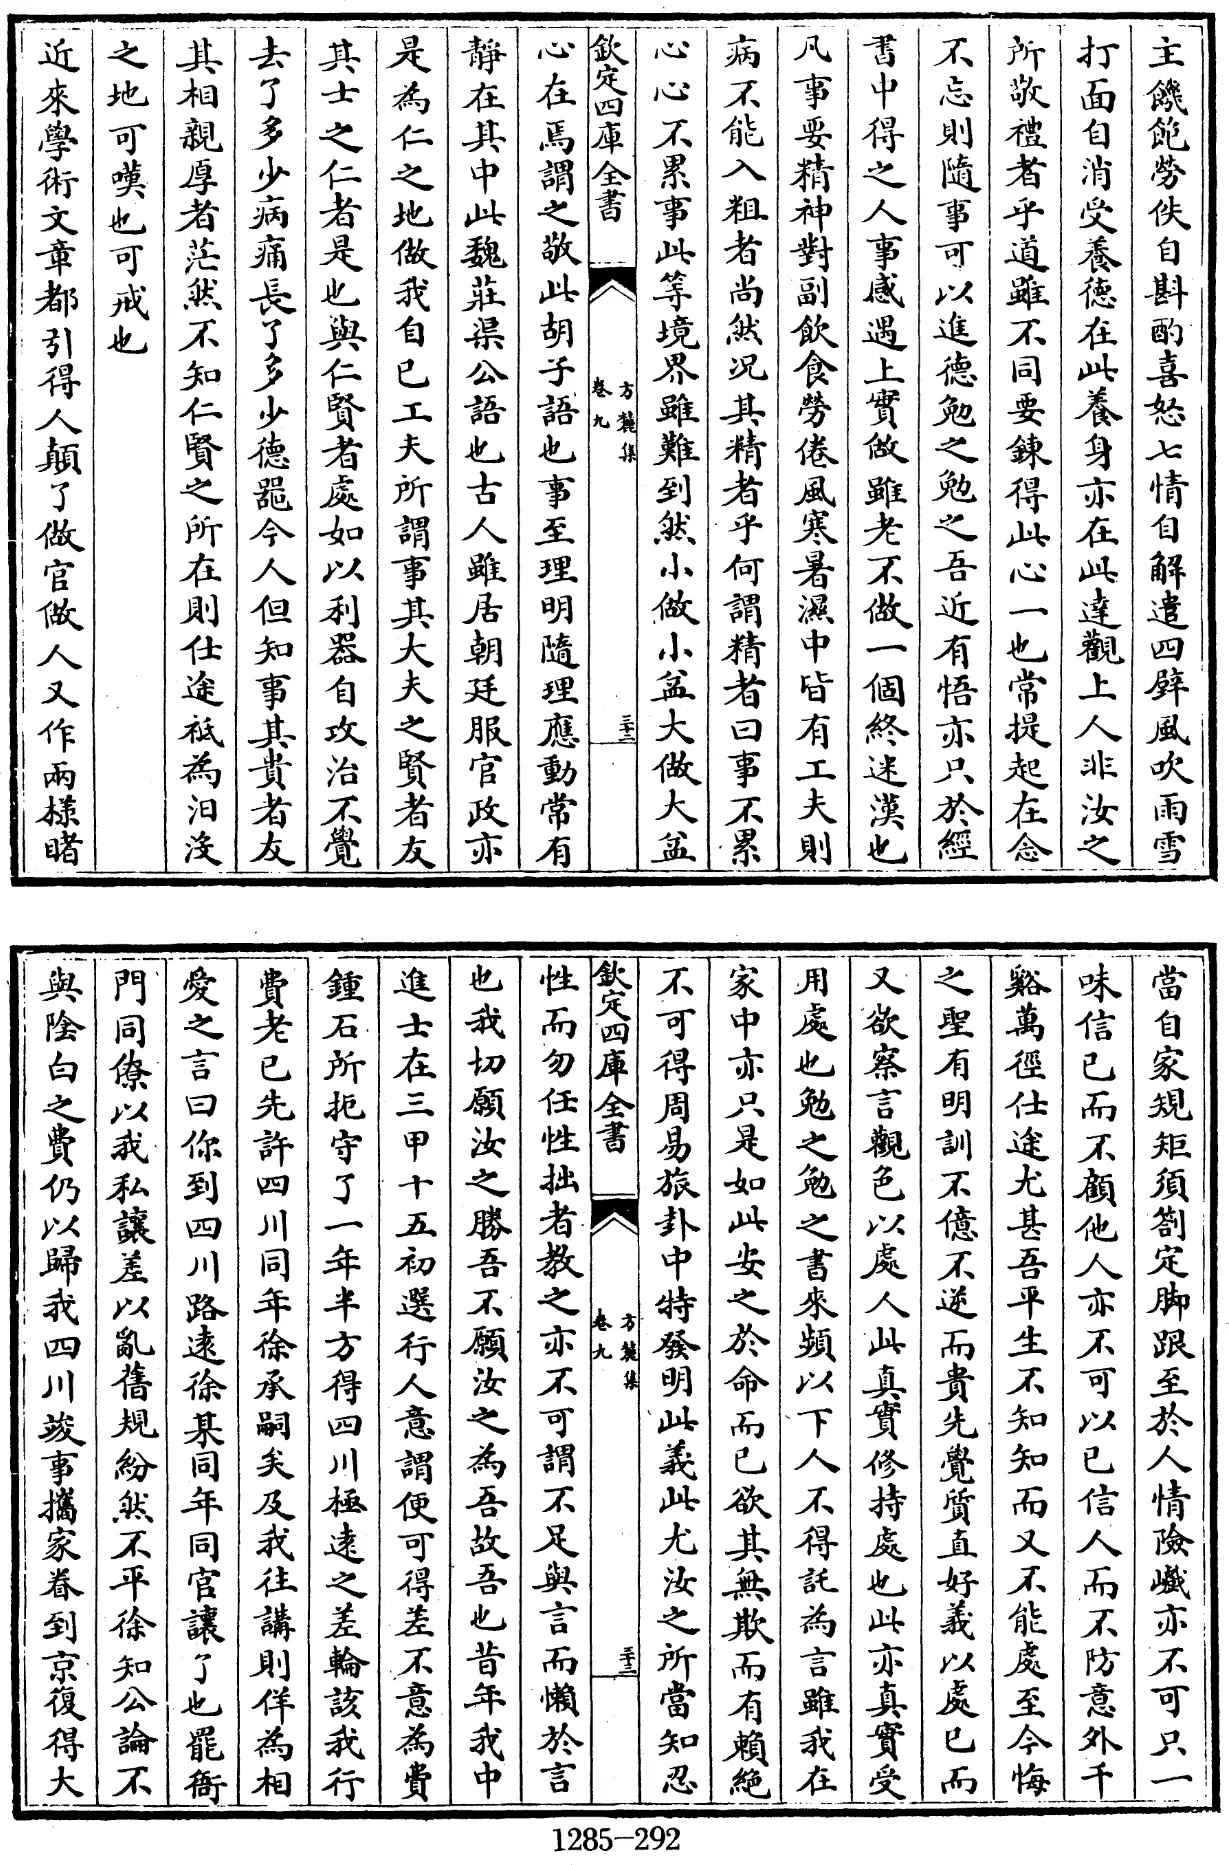 主饑飽勞佚自斟酌喜怒七情自解遣四壁風吹雨雪
打面自消受養德在此養身亦在此達觀上人非汝之
所敬禮者乎道雖不同要鍊得此心一也常提起在念
不忘則隨事可以進德勉之勉之吾近有悟亦只於經
書中得之人事感遇上實做雖老不做一個終迷漢也
凡事要精神對副飲食勞倦風寒暑濕中皆有工夫則
病不能入粗者尚然况其精者乎何謂精者曰事不累
心心不累事此等境界雖難到然小做小益大做大益
欽定四庫全書
方麓集
卷九
三十二
心在焉謂之敬此胡子語也事至理明隨理應動常有
靜在其中此魏莊渠公語也古人雖居朝廷服官政亦
是為仁之地做我自已工夫所謂事其大夫之賢者友
其士之仁者是也與仁賢者處如以利器自攻治不覺
去了多少病痛長了多少德器今人但知事其貴者友
其相親厚者茫然不知仁賢之所在則仕途祗為汨沒
之地可嘆也可戒也
近來學術文章都引得人顛了做官做人又作兩樣睹
當自家規矩須劄定脚跟至於人情險巇亦不可只一
味信已而不顧他人亦不可以已信人而不防意外千
谿萬徑仕途尤甚吾平生不知知而又不能處至今悔
之聖有明訓不億不逆而貴先覺質直好義以處已而
又欲察言觀色以處人此真實修持處也此亦真實受
用處也勉之勉之書來頻以下人不得託為言雖我在
家中亦只是如此安之於命而已欲其無欺而有賴絶
不可得周易旅卦中特發明此義此尤汝之所當知忍
欽定四庫全書
方麓集
卷九
三十三
性而勿任性拙者教之亦不可謂不足與言而懶於言
也我切願汝之勝吾不願汝之為吾故吾也昔年我中
進士在三甲十五初選行人意謂便可得差不意為費
鍾石所扼守了一年半方得四川極遠之差輪該我行
費老已先許四川同年徐承嗣矣及我往講則佯為相
愛之言曰你到四川路遠徐某同年同官讓了也罷衙
門同僚以我私讓差以亂舊規紛然不平徐知公論不
與陰白之費仍以歸我四川竣事攜家眷到京復得大
1285-292